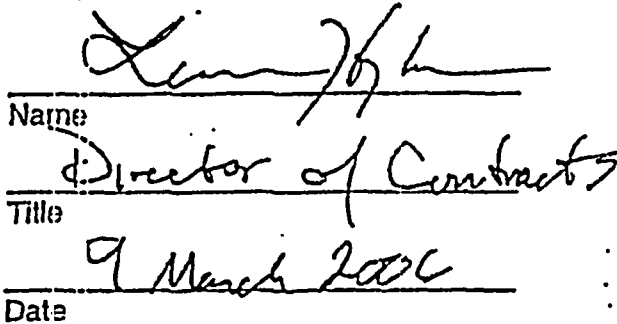 Name
Director of Contracts
Title
9 March 2006
Date